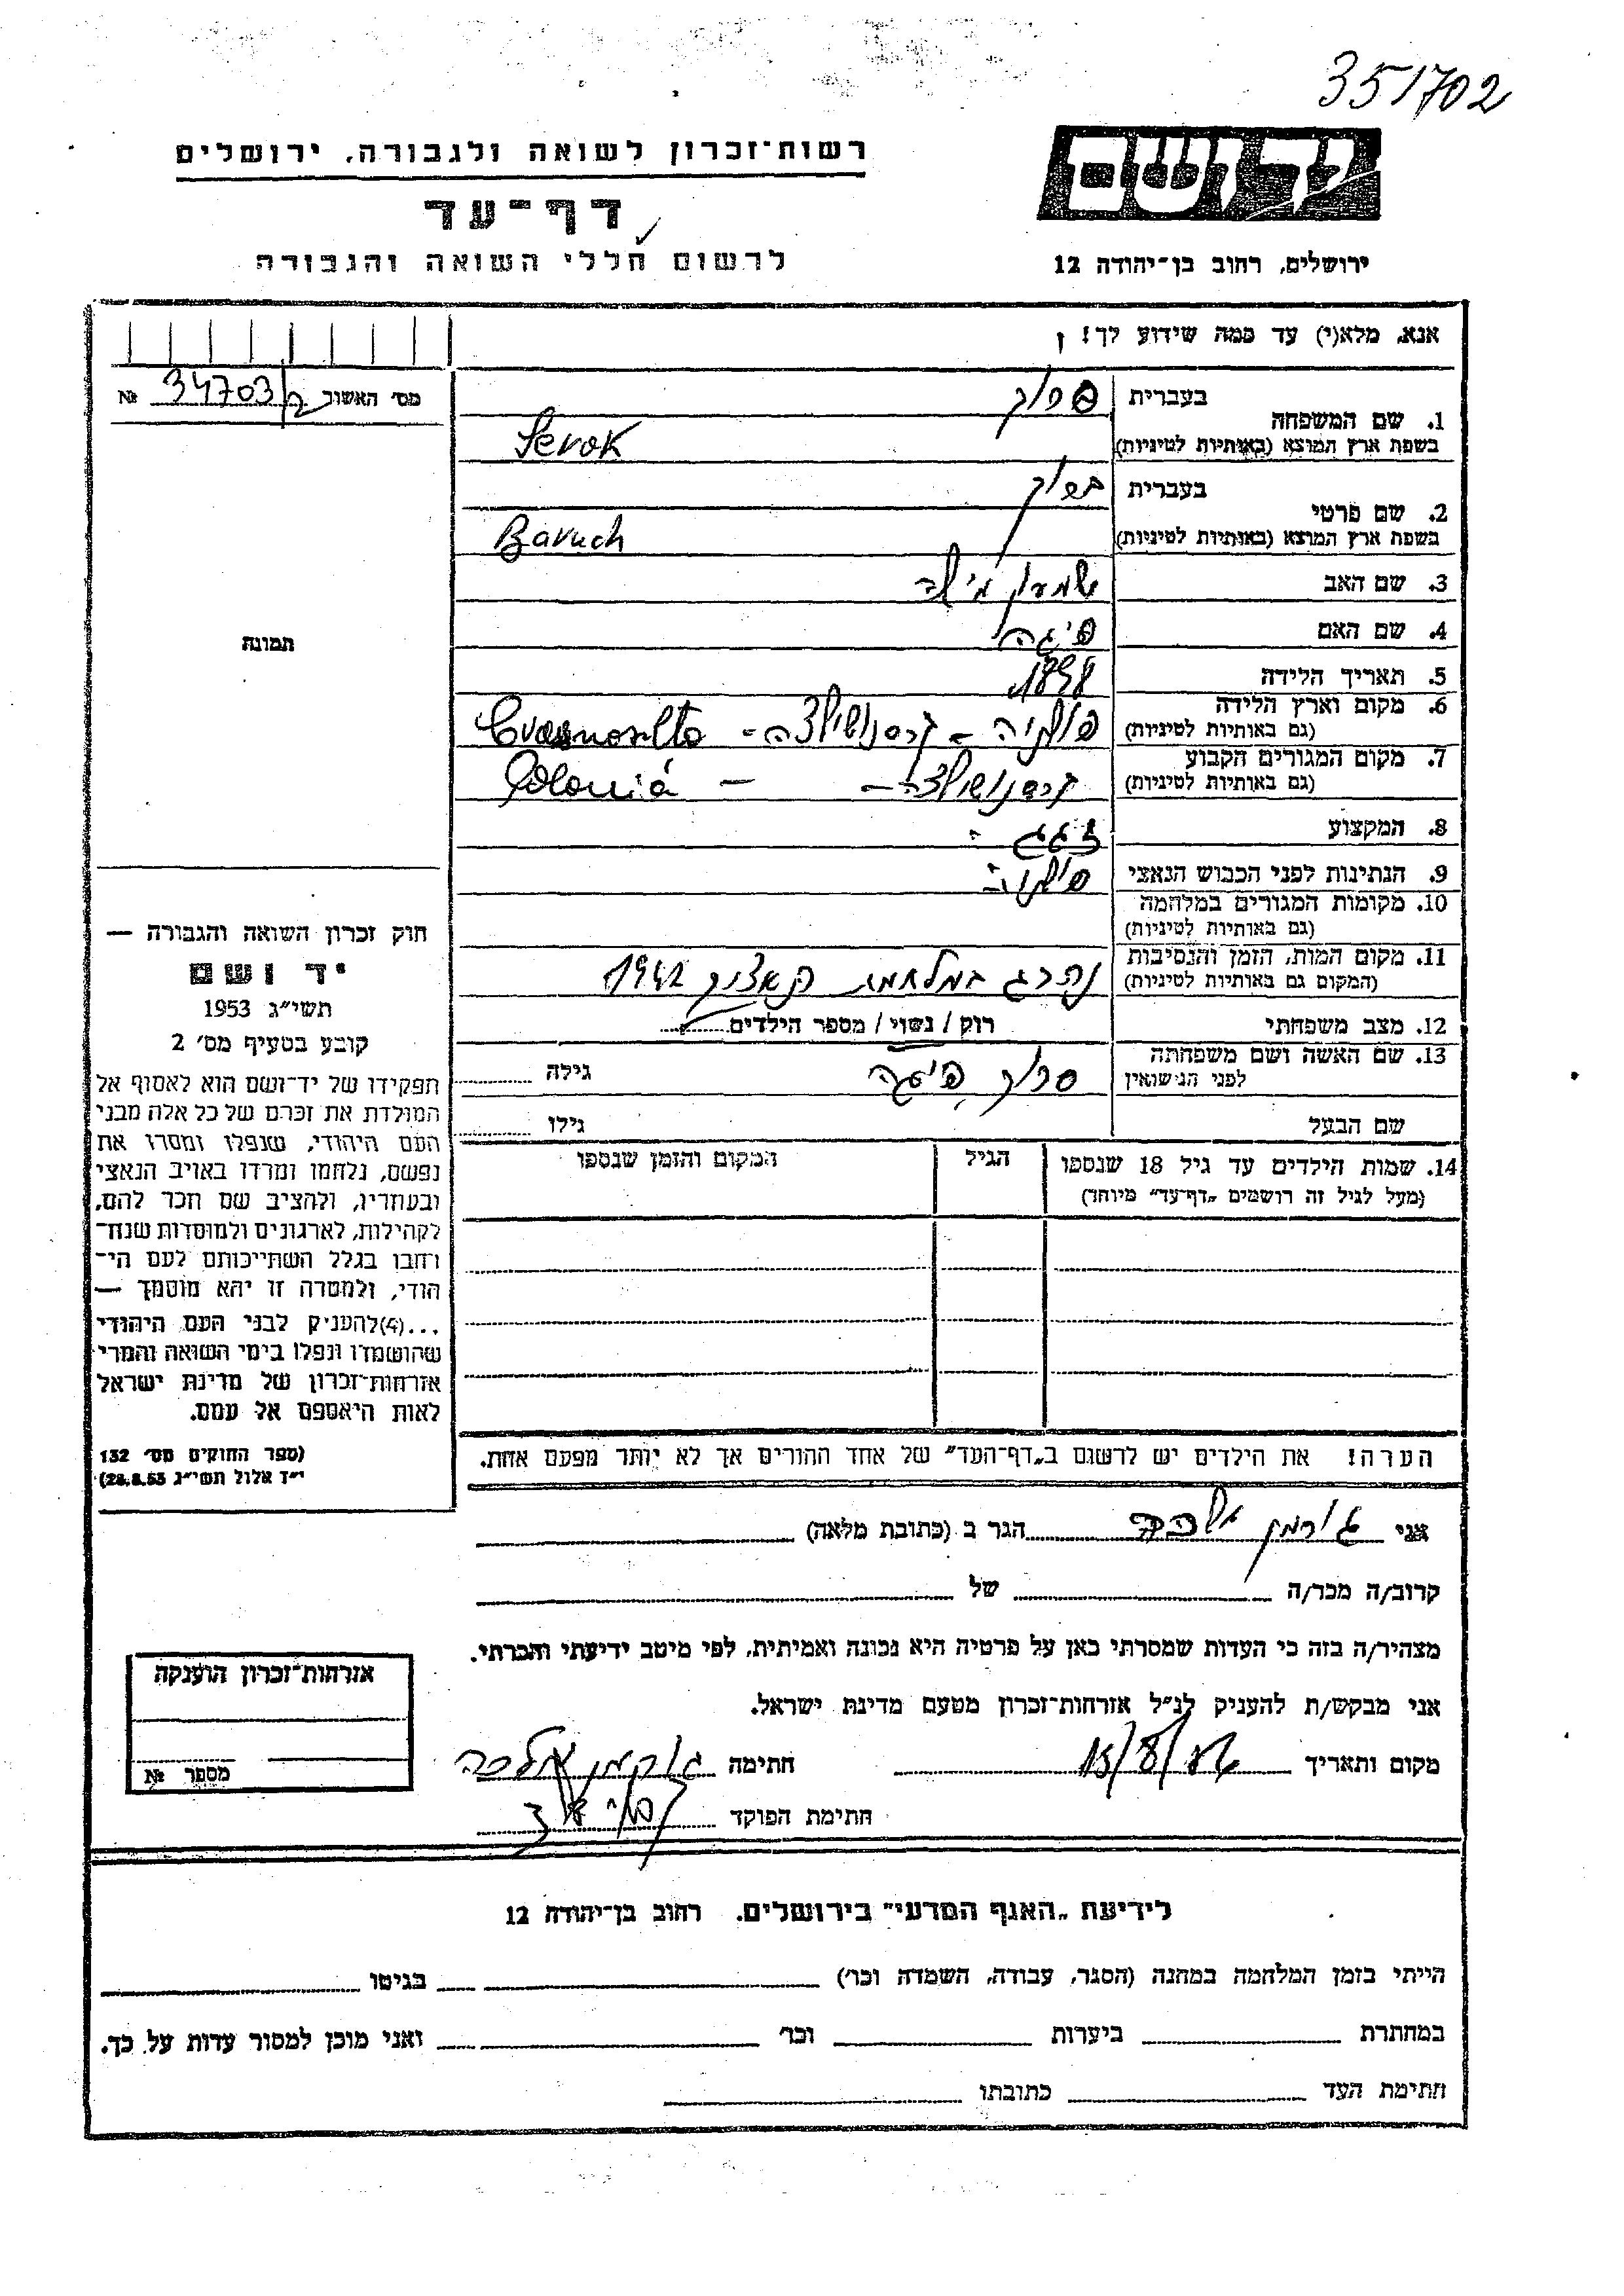 351702
רשות־זכרון לשואה ולגבורה, ירושלים
יד ושם
דף־עד
לרשום חללי השואה והגבורה
ירושלים, רחוב בן־יהודה 12
אנא, מלא(י) עד כמה שידוע לך!
מס׳ האשור 34703/2 №
1. שם המשפחה
בעברית סרוק
בשפת ארץ המוצא (באותיות לטיניות) Serok
2. שם פרטי
בעברית ברוך
בשפת ארץ המוצא (באותיות לטיניות) Baruch
3. שם האב שמעון
4. שם האם פיגה
5. תאריך הלידה 1898
6. מקום וארץ הלידה פולניה –
(גם באותיות לטיניות)
7. מקום המגורים הקבוע
(גם באותיות לטיניות) Polonia
8. המקצוע זגג
9. הנתינות לפני הכבוש הנאצי פולני
10. מקומות המגורים במלחמה
(גם באותיות לטיניות)
11. מקום המות, הזמן והנסיבות נהרג במלחמת 1942
(המקום גם באותיות לטיניות)
12. מצב משפחתי רוק / נשוי / מספר הילדים
13. שם האשה ושם משפחתה
לפני הנישואין סרוק גילה
שם הבעל גילו
14. שמות הילדים עד גיל 18 שנספו הגיל המקום והזמן שנספו
(מעל לגיל זה רושמים „דף־עד״ מיוחד)
הערה! את הילדים יש לרשום ב„דף־העד״ של אחד ההורים אך לא יותר מפעם אחת.
תמונה
חוק זכרון השואה והגבורה —
יד ושם
תשי״ג 1953
קובע בסעיף מס׳ 2
תפקידו של יד־ושם הוא לאסוף אל
המולדת את זכרם של כל אלה מבני
העם היהודי, שנפלו ומסרו את
נפשם, נלחמו ומרדו באויב הנאצי
ובעוזריו, ולהציב שם וזכר להם,
לקהילות, לארגונים ולמוסדות שנח־
רחבו בגלל השתייכותם לעם הי־
הודי, ולמטרה זו יהא מוסמך —
...(4)להעניק לבני העם היהודי
שהושמדו ונפלו בימי השואה והמרי
אזרחות־זכרון של מדינת ישראל
לאות היאספם אל עמם.
(ספר החוקים מס׳ 132
י״ד אלול תשי״ג 28.8.53)
אני הגר ב (כתובת מלאה)
קרוב/ה מכר/ה של
מצהיר/ה בזה כי העדות שמסרתי כאן על פרטיה היא נכונה ואמיתית, לפי מיטב ידיעתי והכרתי.
אני מבקש/ת להעניק לנ״ל אזרחות־זכרון מטעם מדינת ישראל.
מקום ותאריך חתימה
חתימת הפוקד
אזרחות־זכרון הוענקה
מספר №
לידיעת „האגף המדעי״ בירושלים, רחוב בן־יהודה 12
הייתי בזמן המלחמה במחנה (הסגר, עבודה, השמדה וכו׳) בגיטו
במחתרת ביערות וכו׳ ואני מוכן למסור עדות על כך.
חתימת העד כתובתו